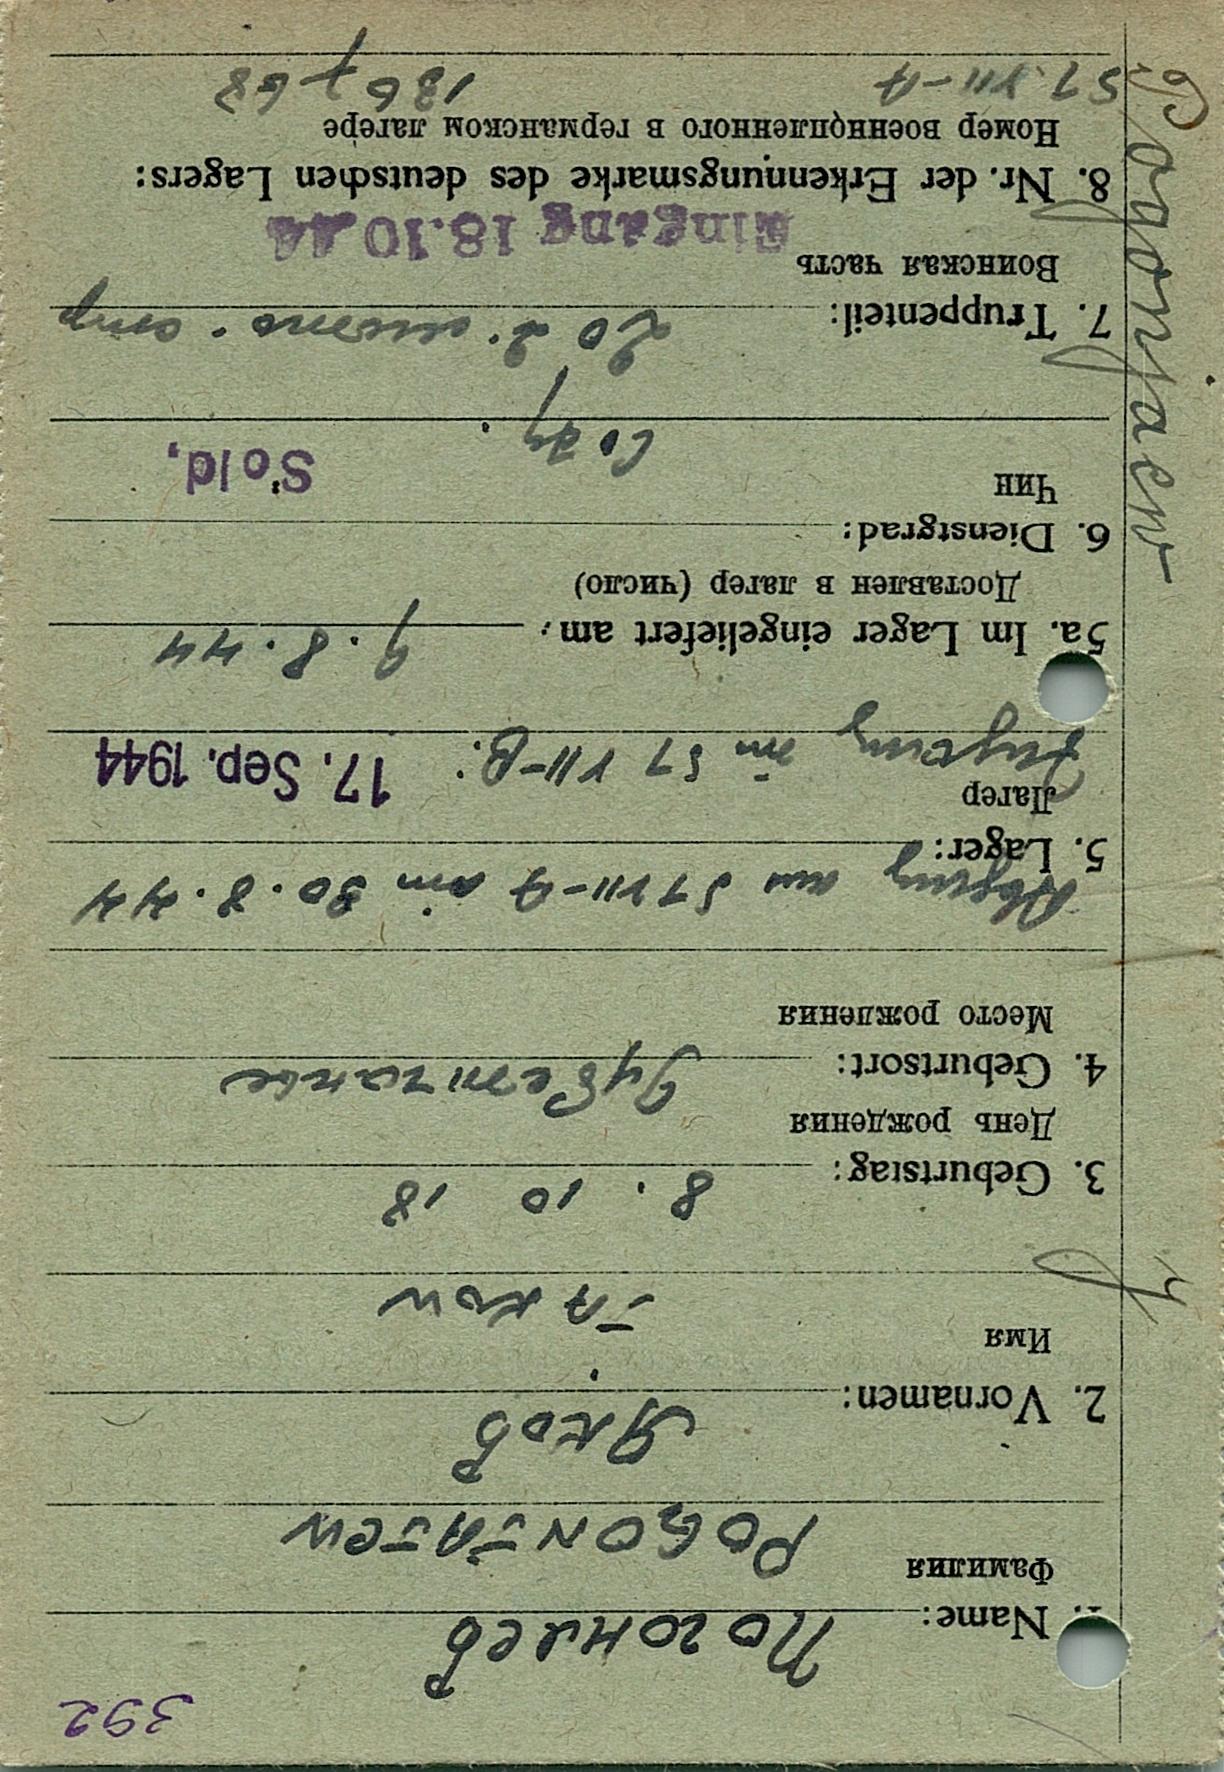 392
Погоняев
1. Name:
Фамилия
POGONJAJEW
Яков
2. Vornamen:
Имя
JAKOW
8. 10 18
3. Geburtstag:
День рождения
4. Geburtsort:
Место рождения
Abgang aus S1 VII-A am 30.8.44
5. Lager:
Лагер
Zugang in S1 VII-B: 17. Sep. 1944
5a. Im Lager eingeliefert am: 9.8.44
Доставлен в лагер (число)
6. Dienstgrad:
Чин
Sold,
7. Truppenteil:
Воинская часть
Eingang 18.10.44
8. Nr. der Erkennungsmarke des deutschen Lagers:
Номер военнопленного в германском лагере
S1. VII-A 136768
Pogonjaew
J